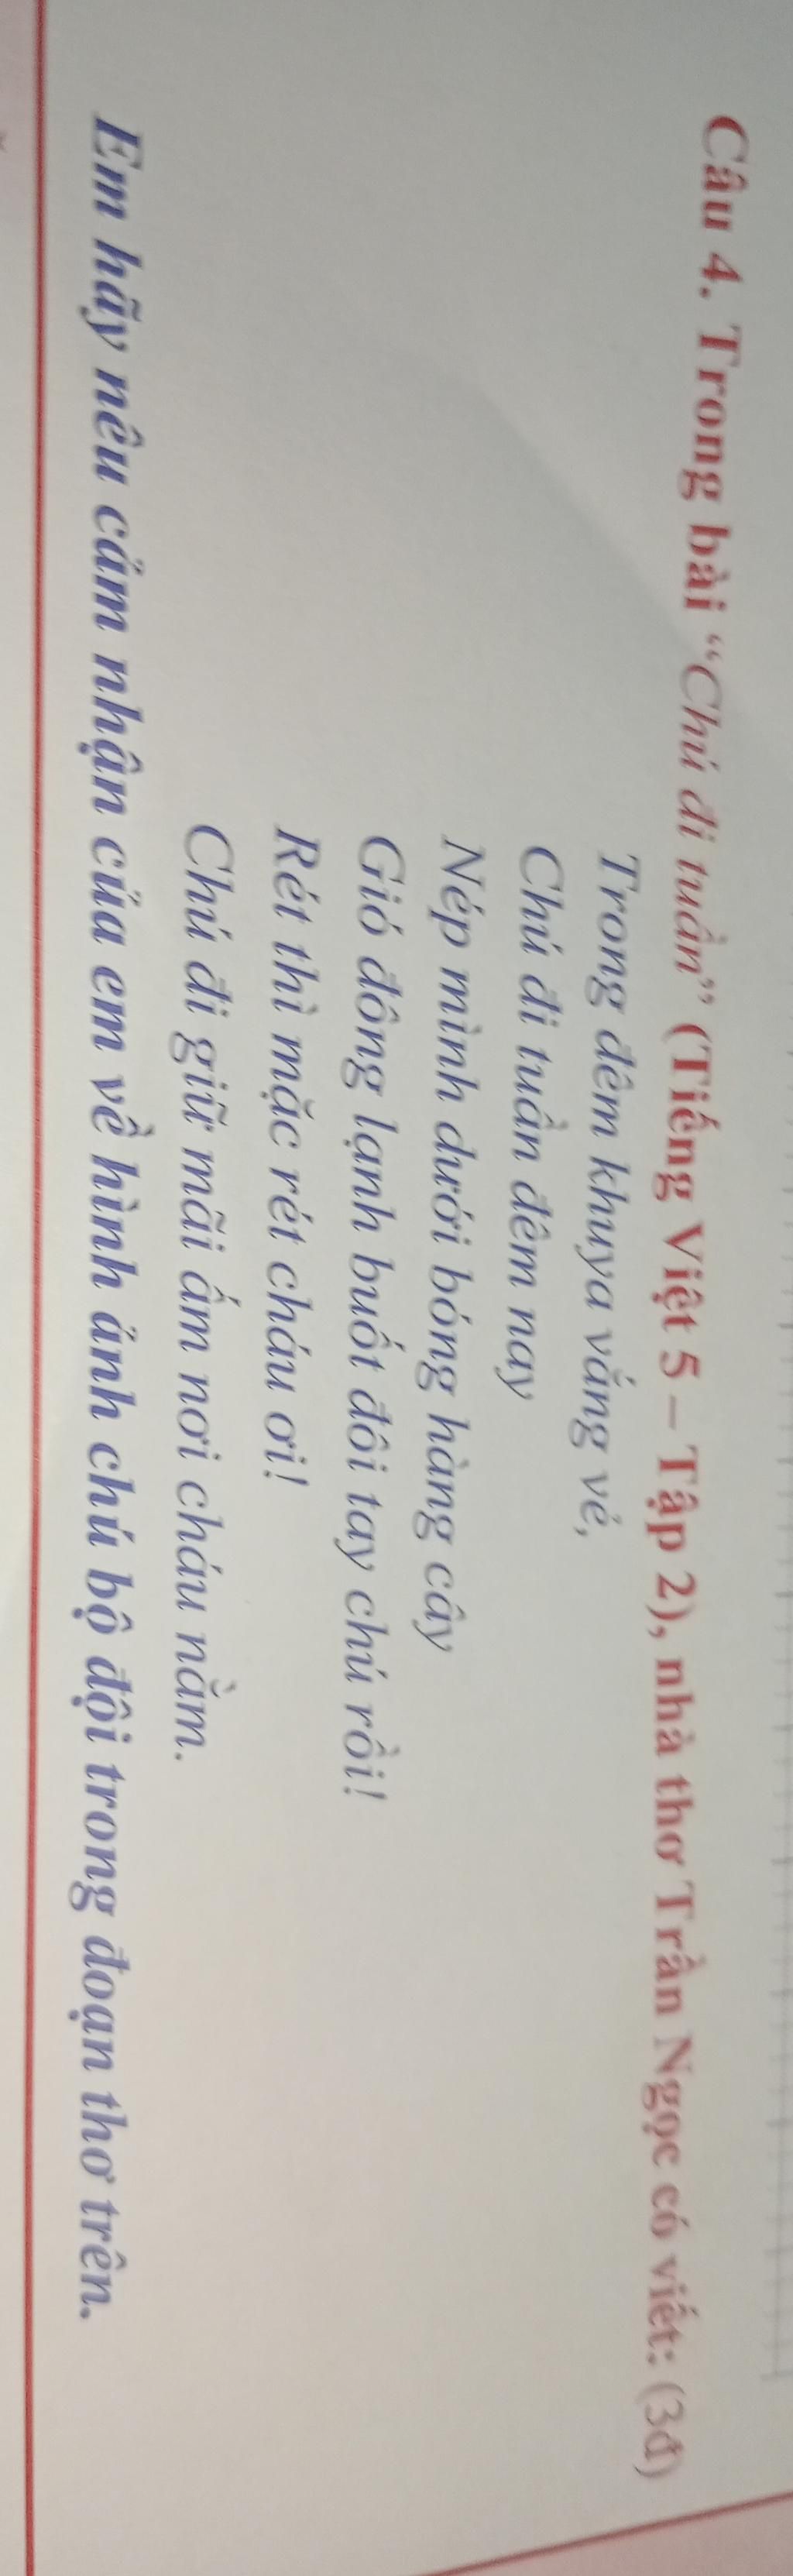 Câu 4. Trong bài “Chú đi tuần” (Tiếng Việt 5 – Tập 2), nhà thơ Trần Ngọc có viết: (3đ)
Trong đêm khuya vắng vẻ,
Chú đi tuần đêm nay
Nép mình dưới bóng hàng cây
Gió đông lạnh buốt đôi tay chú rồi!
Rét thì mặc rét cháu ơi!
Chú đi giữ mãi ấm nơi cháu nằm.
Em hãy nêu cảm nhận của em về hình ảnh chú bộ đội trong đoạn thơ trên.